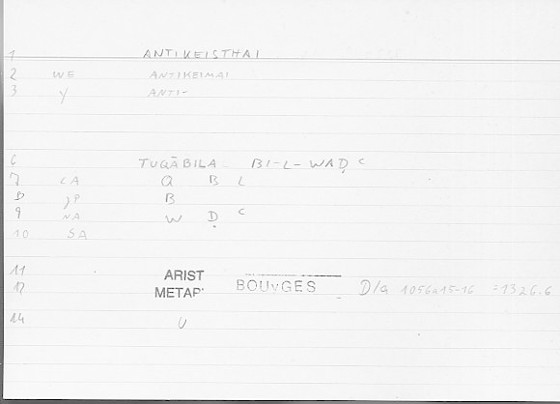 1 ANTIKEISTHAI
2 WE ANTIKEIMAI
3 Y ANTI-
6 TUQĀBILA BI-L-WAḌʿ
7 LA Q B L
8 JP B
9 NA W Ḍ ʿ
10 SA
11 ARIST
12 METAP. BOUYGES D/a 1056a15-16 =1326.6
14 U